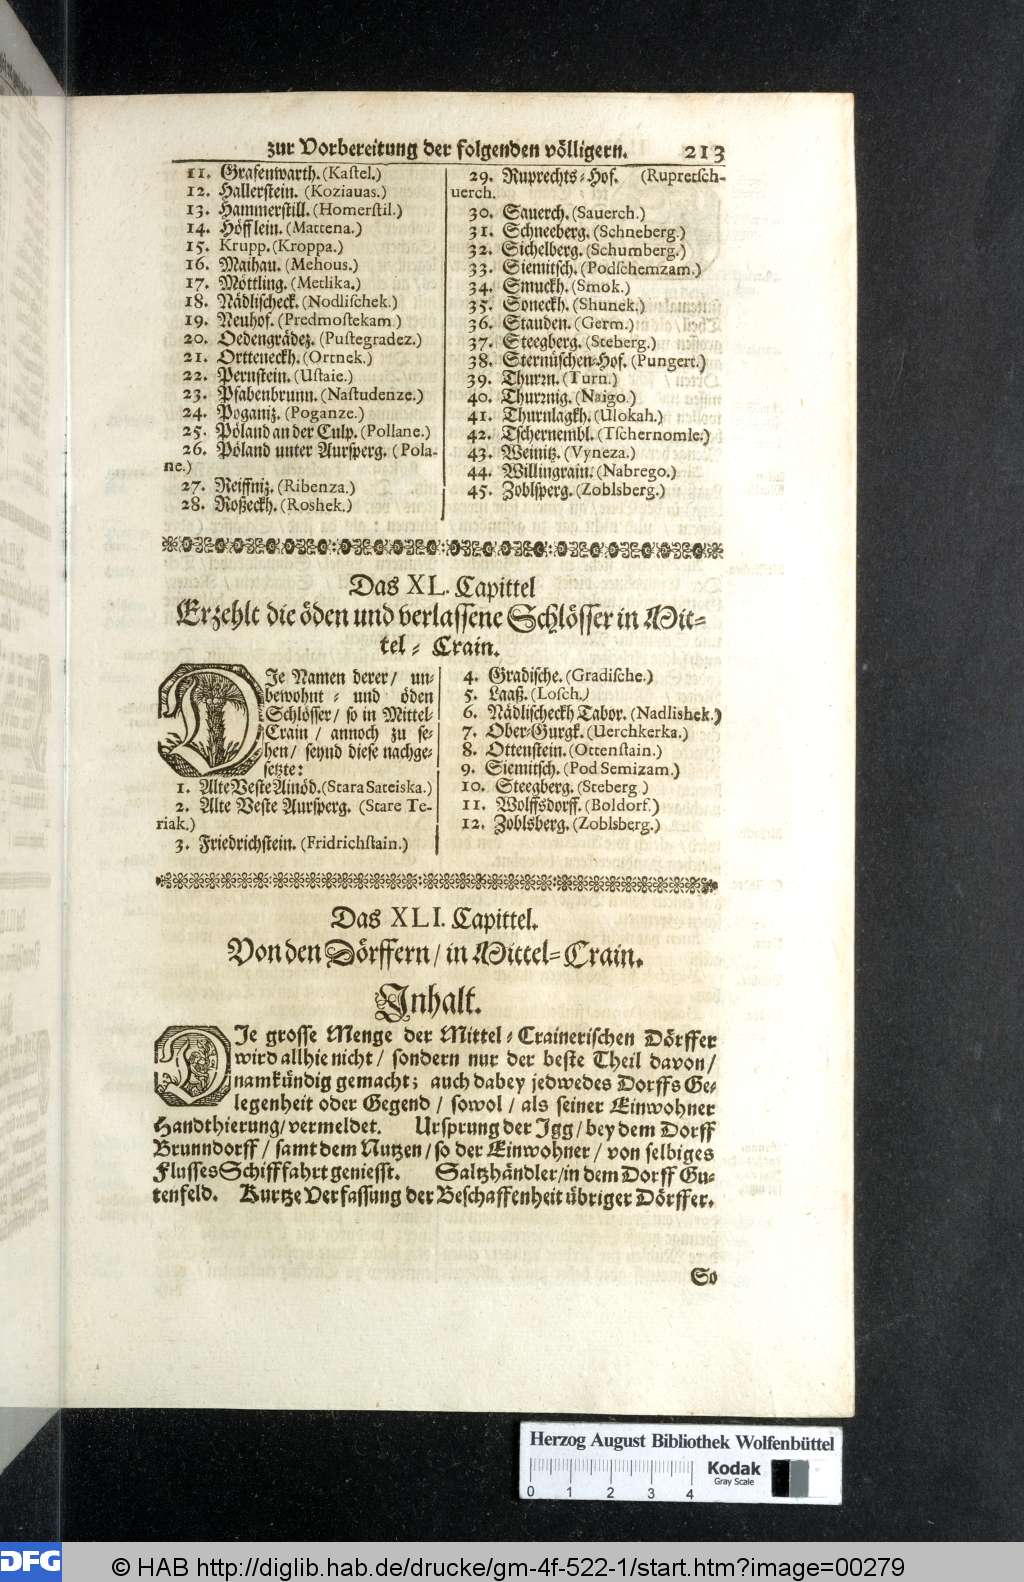 zur Vorbereitung der folgenden völligern. 213
11. Grafenwarth. (Kastel.)
12. Hallerstein. (Koziauas.)
13. Hammerstill. (Homerstil.)
14. Höfflein. (Mattena.)
15. Krupp. (Kroppa.)
16. Maihau. (Mehous.)
17. Möttling. (Metlika.)
18. Nädlischeck. (Nodlischek.)
19. Neuhof. (Predmostekam)
20. Oedengrädez. (Pustegradez.)
21. Ortteneckh. (Ortnek.)
22. Pernstein. (Ustaie.)
23. Pfabenbrunn. (Nastudenze.)
24. Poganiz. (Poganze.)
25. Pöland an der Culp. (Pollane.)
26. Pöland unter Aursperg. (Pola-
ne.)
27. Reiffniz. (Ribenza.)
28. Roßeckh. (Roshek.)
29. Ruprechts-Hof. (Rupretsch-
uerch.
30. Sauerch. (Sauerch.)
31. Schneeberg. (Schneberg.)
32. Sichelberg. (Schumberg.)
33. Siemitsch. (Podschemzam.)
34. Smuckh. (Smok.)
35. Soneckh. (Shunek.)
36. Stauden. (Germ.)
37. Steegberg. (Steberg.)
38. Sternüschen-Hof. (Pungert.)
39. Thurrn. (Turn.)
40. Thurrnig. (Naigo.)
41. Thurnlagkh. (Ulokah.)
42. Tschernembl. (Tschernomle.)
43. Weinitz. (Vyneza.)
44. Willingrain. (Nabrego.)
45. Zoblsperg. (Zoblsberg.)
Das XL. Capittel
Erzehlt die öden und verlassene Schlösser in Mit-
tel-Crain.
DIe Namen derer / un-
bewohnt- und öden
Schlösser / so in Mittel-
Crain / annoch zu se-
hen / seynd diese nachge-
setzte:
1. Alte Veste Ainöd. (Stara Sateiska.)
2. Alte Veste Aursperg. (Stare Te-
riak.)
3. Friedrichstein. (Fridrichstain.)
4. Gradische. (Gradische.)
5. Laaß. (Losch.)
6. Nädlischeckh Tabor. (Nadlishek.)
7. Ober-Gurgk. (Uerchkerka.)
8. Ottenstein. (Ottenstain.)
9. Siemitsch. (Pod Semizam.)
10. Steegberg. (Steberg)
11. Wolffsdorff. (Boldorf.)
12. Zoblsberg. (Zoblsberg.)
Das XLI. Capittel.
Von den Dörffern / in Mittel-Crain.
Inhalt.
DIe grosse Menge der Mittel-Crainerischen Dörffer
wird allhie nicht / sondern nur der beste Theil davon /
namkündig gemacht; auch dabey jedwedes Dorffs Ge-
legenheit oder Gegend / sowol / als seiner Einwohner
Handthierung / vermeldet. Ursprung der Igg / bey dem Dorff
Brunndorff / samt dem Nutzen / so der Einwohner / von selbiges
Flusses Schifffahrt geniesst. Saltzhändler / in dem Dorff Gu-
tenfeld. Kurtze Verfassung der Beschaffenheit übriger Dörffer.
So
Herzog August Bibliothek Wolfenbüttel
0 1 2 3 4
Kodak
Gray Scale
DFG
© HAB http://diglib.hab.de/drucke/gm-4f-522-1/start.htm?image=00279